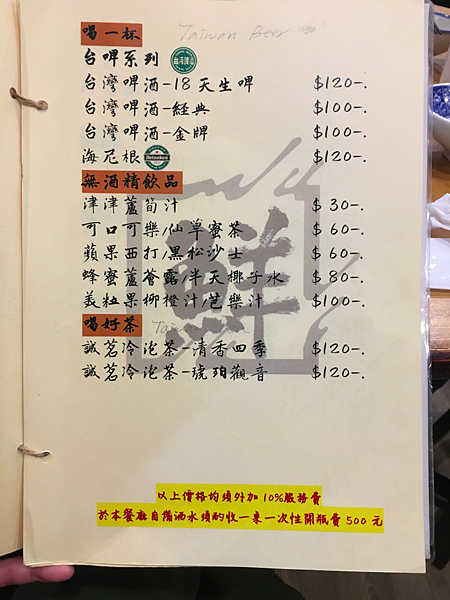 喝一杯 Taiwan Beer
台啤系列 台灣啤酒
台灣啤酒-18天生啤 $120-.
台灣啤酒-經典 $100-.
台灣啤酒-金牌 $100-.
海尼根 Heineken $120-.
無酒精飲品
津津蘆筍汁 $30-.
可口可樂/仙草蜜茶 $60-.
蘋果西打/黑松沙士 $60-.
蜂蜜蘆薈露/半天椰子水 $80-.
美粒果柳橙汁/芭樂汁 $100-.
鮮
喝好茶
誠茗冷泡茶-清香四季 $120-.
誠茗冷泡茶-琥珀觀音 $120-.
以上價格均須外加10%服務費
於本餐廳自備酒水須酌收一桌一次性開瓶費500元